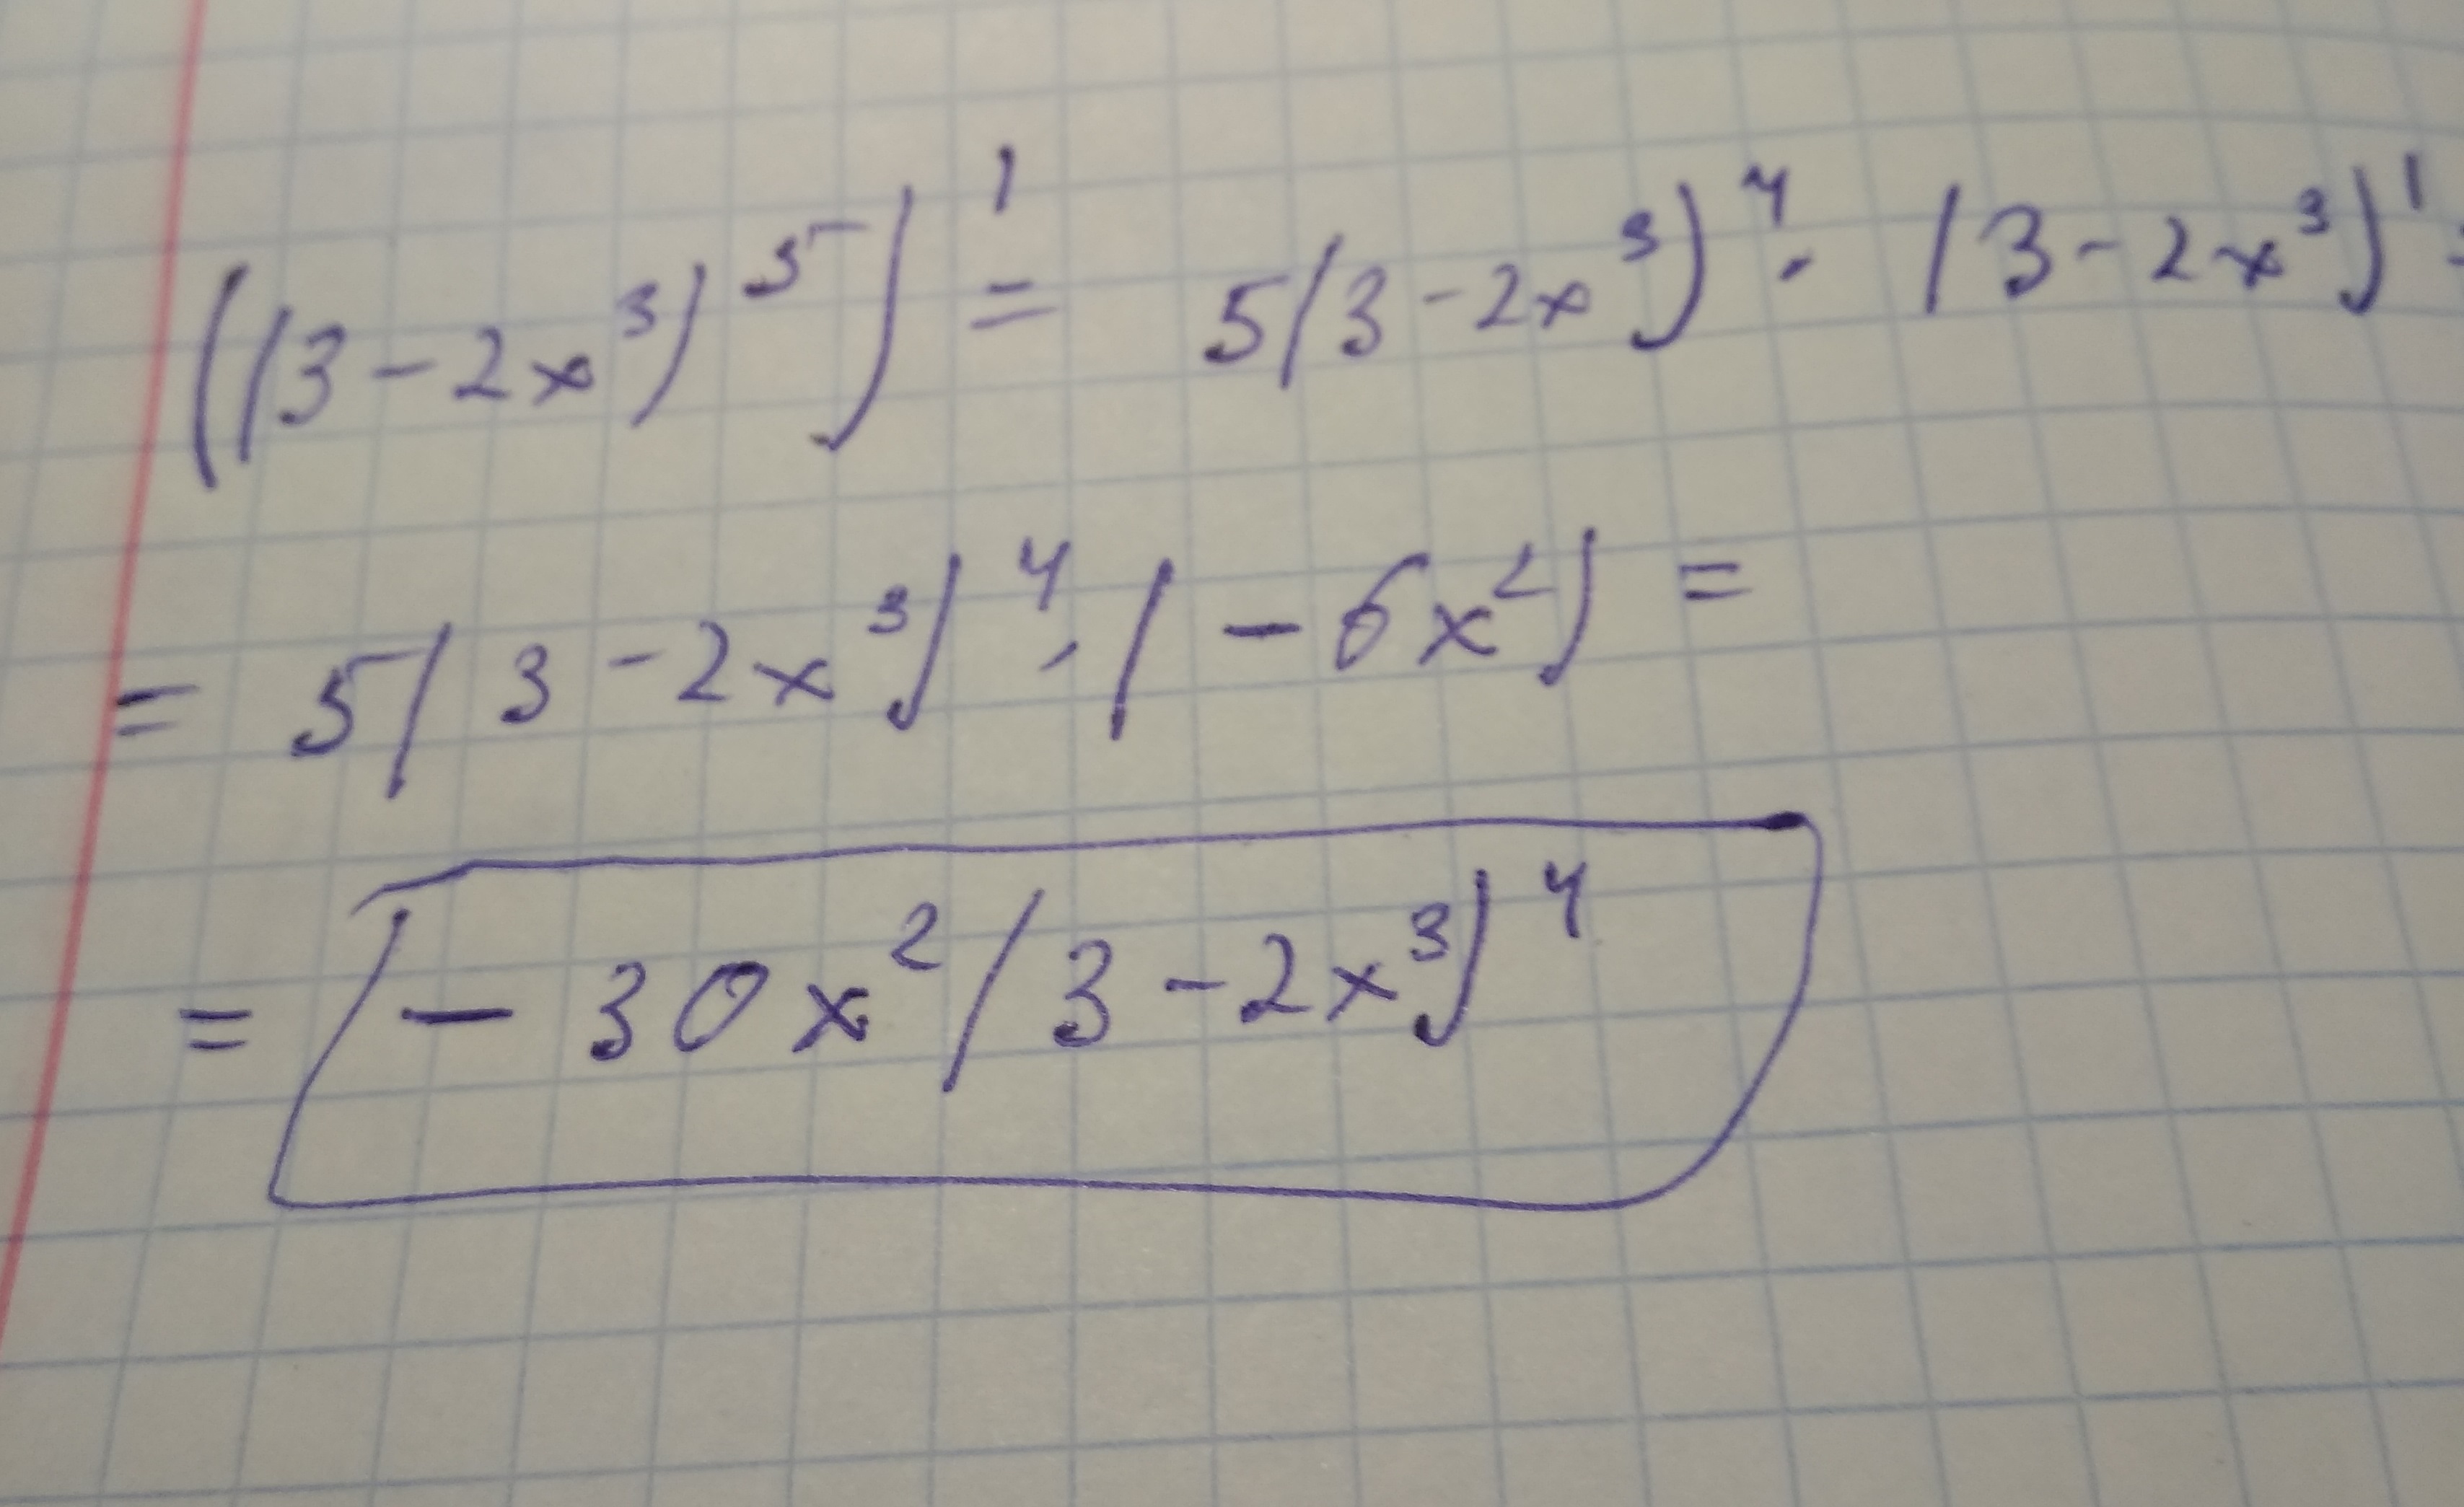 ((3-2x³)⁵)' = 5(3-2x³)⁴·(3-2x³)' =
= 5(3-2x³)⁴·(-6x²) =
= -30x²(3-2x³)⁴